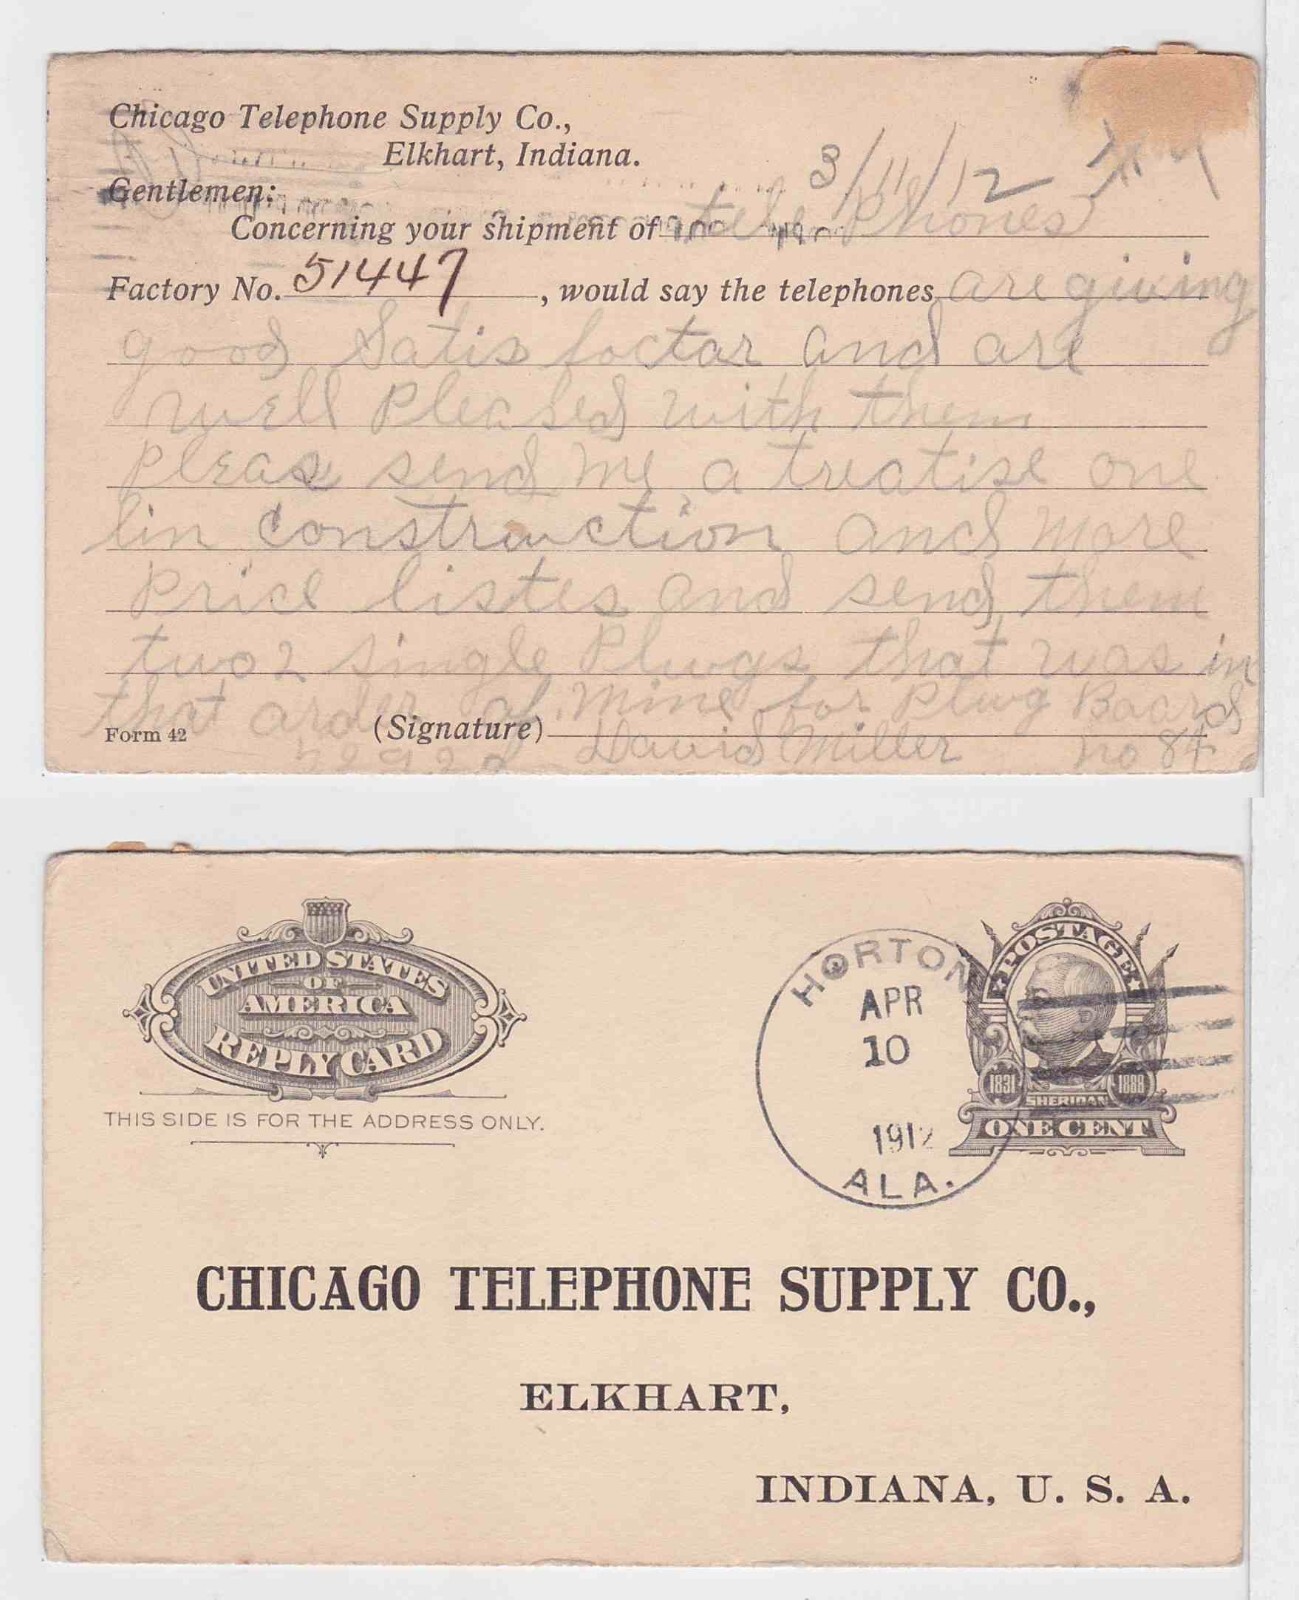 Chicago Telephone Supply Co.,
Elkhart, Indiana.
3/11/12
Gentlemen:
Concerning your shipment of telephones
Factory No. 51447, would say the telephones are giving
good Satisfoctar and are
well Pleased with them
Please send me a treatise one
lin construction and more
Price listes and send them
two 2 single Plugs that was in
that order of mine for Plug Board
Form 42
(Signature) David Miller no 84
UNITED STATES
OF
AMERICA
REPLY CARD
THIS SIDE IS FOR THE ADDRESS ONLY.
HORTON
APR
10
1912
ALA.
POSTAGE
1831 1888
SHERIDAN
ONE CENT
CHICAGO TELEPHONE SUPPLY CO.,
ELKHART,
INDIANA, U. S. A.